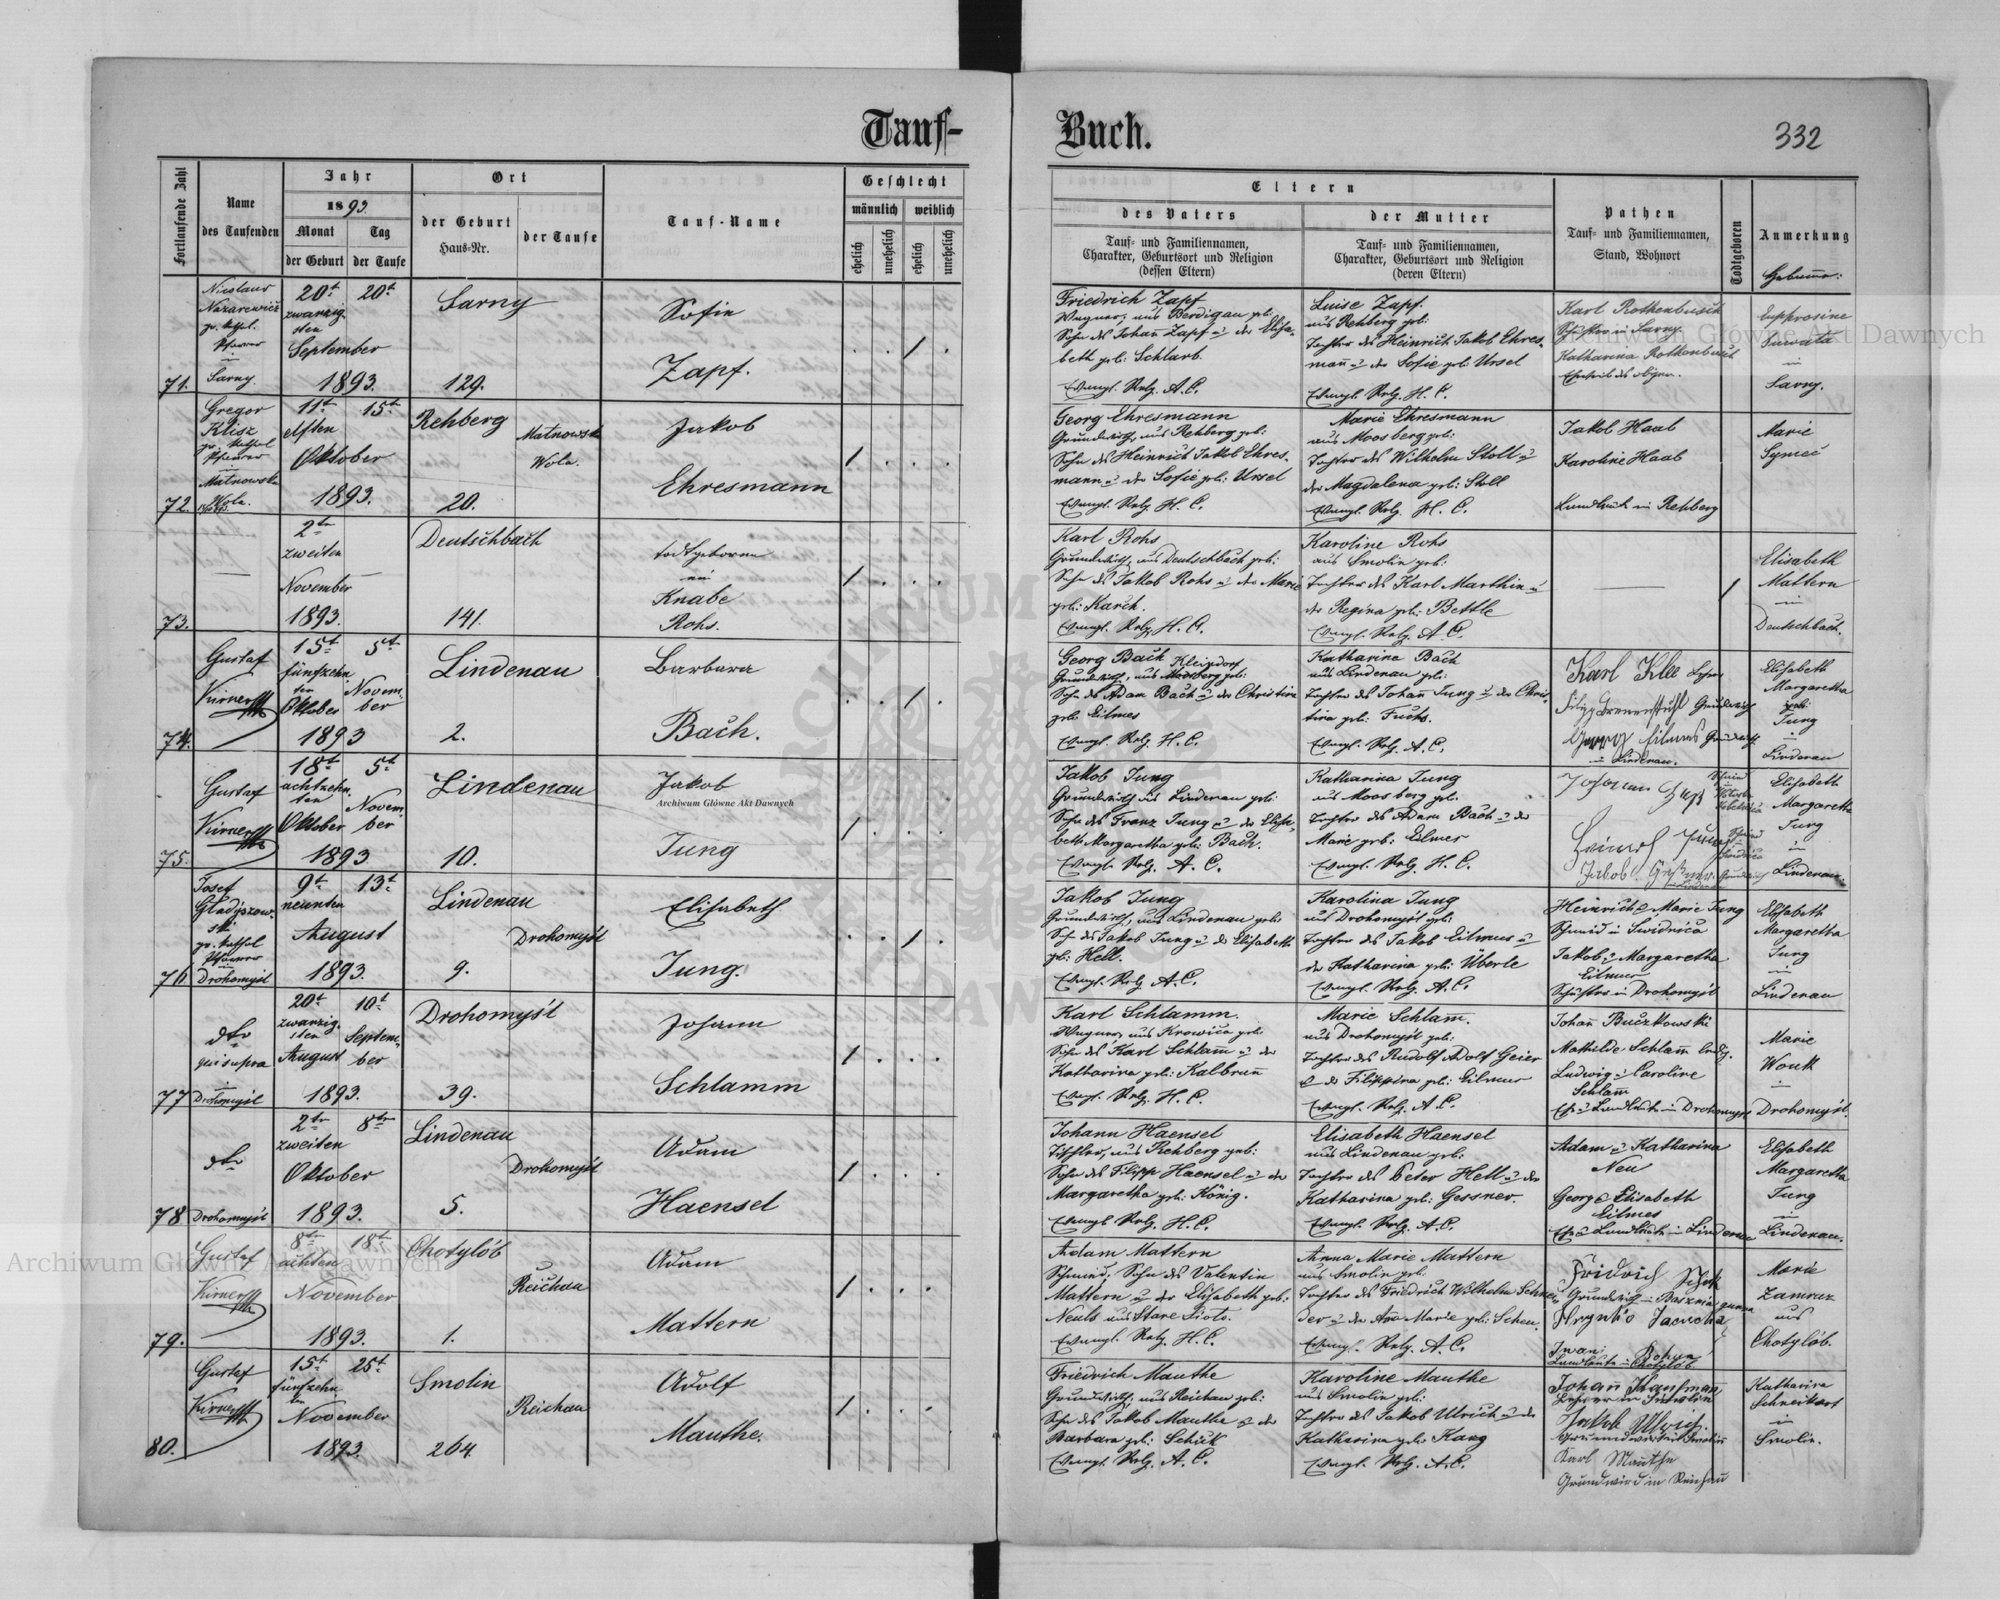 Tauf-
Buch.
332
Fortlaufende Zahl
Name
des Taufenden
Jahr
1893.
Monat
der Geburt
Tag
der Taufe
Ort
der Geburt
Haus-Nr.
der Taufe
Tauf-Name
Geschlecht
männlich
weiblich
ehelich
unehelich
ehelich
unehelich
Eltern
des Vaters
Tauf- und Familiennamen,
Charakter, Geburtsort und Religion
(dessen Eltern)
der Mutter
Tauf- und Familiennamen,
Charakter, Geburtsort und Religion
(deren Eltern)
Pathen
Tauf- und Familiennamen,
Stand, Wohnort
Todtgeboren
Anmerkung
71.
Nicolaus
Nazarewicz
gr. kathol.
Pfarrer
in
Sarny.
20t 20t
zwanzig-
sten
September
1893.
Sarny
129.
Sofie
Zapf.
Friedrich Zapf
Wagner, aus Berdigau geb:
Sohn des Johan̄ Zapf u der Elisa-
beth geb: Schlarb.
Evangl. Relg. A. C.
Luise Zapf.
aus Rehberg geb:
Tochter des Heinrich Jakob Ehres-
man̄ u der Sofie geb: Ursel
Evangl. Relg. H. C.
Karl Rothenbusch
Schuster in Sarny
Katharina Rothenbusch
Euphrosine
in
Sarny.
72.
Gregor
Klisz
gr. kathol
Pfarrer
in
Matnowska
Wola.
11t 15t
elften
Oktober
1893.
Rehberg
20.
Matnowska
Wola.
Jakob
Ehresmann
Georg Ehresmann
Grundwirth, aus Rehberg geb:
Sohn des Heinrich Jakob Ehres-
mann u der Sofie geb: Ursel
Evangl. Relg. H. C.
Marie Ehresmann
aus Moosberg geb:
Tochter des Wilhelm Stoll u
der Magdalena geb: Stoll
Evangl. Relg. H. C.
Jakob Haab
Karoline Haab
Landleute in Rehberg
Marie
Symeć
73.
2tn
zweiten
November
1893.
Deutschbach
141.
todtgeboren
ein
Knabe
Rohs.
Karl Rohs
Grundwirth, aus Deutschbach geb:
Sohn des Jakob Rohs u der Marie
geb: Karch.
Evangl. Relg. H. C.
Karoline Rohs
aus Smolin geb:
Tochter des Karl Marthin u
der Regina geb: Bettle
Evangl. Relg. A. C.
Elisabeth
Mattern
in
Deutschbach.
74.
Gustaf
15t 5t
fünfzehn-
ten Novem-
Oktober ber
1893
Lindenau
2.
Barbara
Bach.
Georg Bach
Grundwirth, aus Moosberg geb:
Sohn des Adam Bach u der Christine
geb: Eilmes
Evangl. Relg. H. C.
Katharina Bach
aus Lindenau geb:
Tochter des Johan̄ Jung u der Chris-
tina geb: Fuchs.
Evangl. Relg. A. C.
Karl Klee Lehrer
Georg Eilmes
in Lindenau.
Elisabeth
Margaretha
Jung
in
Lindenau
75.
Gustaf
18t 5t
achtzehn-
ten Novem-
Oktober ber
1893
Lindenau
10.
Jakob
Jung
Jakob Jung
Grundwirth aus Lindenau geb:
Sohn des Franz Jung u der Elisa-
beth Margaretha geb: Bach.
Evangl. Relg. A. C.
Katharina Jung
aus Moosberg geb:
Tochter des Adam Bach u der
Marie geb: Eilmes
Evangl. Relg. H. C.
Elisabeth
Margaretha
Jung
in
Lindenau.
76
Josef
Gladyszow-
ski
gr. kathol
Pfarrer
Drohomyśl
9t 13t
neunten
August
1893.
Lindenau
9.
Drohomyśl
Elisabeth
Jung.
Jakob Jung
Grundwirth, aus Lindenau geb:
Sohn des Jakob Jung u der Elisabeth
geb: Hell.
Evangl. Relg. A. C.
Karolina Jung
aus Drohomyśl geb:
Tochter des Jakob Eilmes u
der Katharina geb: Überle
Evangl. Relg. A. C.
Heinrich u Marie Jung
Schmied in Swidnica
Jakob u Margaretha
Eilmes
Schuster in Drohomyśl
Elisabeth
Margaretha
Jung
in
Lindenau
77
dto
qui supra
in
Drohomyśl
20t 10t
zwanzig-
sten Septem-
August ber
1893.
Drohomyśl
39.
Johann
Schlamm
Karl Schlamm.
Wagner, aus Krowica geb:
Sohn des Karl Schlam̄ u der
Katharina geb: Kalbrun̄
Evangl. Relg. H. C.
Marie Schlam̄.
aus Drohomyśl geb:
Tochter des Rudolf Adolf Geier
u der Filippina geb: Eilmes
Evangl. Relg. A. C.
Johan̄ Buczkowski
Mathilde Schlam̄ ledig.
Ludwig u Caroline
Schlam̄
Marie
Wouk
in
Drohomyśl.
78
dto
Drohomyśl
2tn 8tn
zweiten
Oktober
1893.
Lindenau
5.
Drohomyśl
Adam
Haensel
Johann Haensel
Tischler, aus Rehberg geb:
Sohn des Filipp Haensel u der
Margaretha geb: König.
Evangl. Relg. H. C.
Elisabeth Haensel
aus Lindenau geb:
Tochter des Peter Hell u der
Katharina geb: Gessner.
Evangl. Relg. A. C.
Adam u Katharina
Neu
Georg u Elisabeth
Eilmes
Elisabeth
Margaretha
Jung
in
Lindenau.
79.
Gustaf
8tn 18t
achten
November
1893.
Chotylób
1.
Reichau
Adam
Mattern
Adam Mattern
Schmied, Sohn des Valentin
Mattern u der Elisabeth geb:
Neuls aus Stare Sioło.
Evangl. Relg. H. C.
Anna Marie Mattern
aus Smolin geb:
Tochter des Friedrich Wilhelm Schnei-
der u der Ana Marie geb: Scheu.
Evangl. Relg. A. C.
Hrynko Jacucha
Iwan Bohun
Landleute in Chotylób
Marie
Zamraz
aus
Chotylób.
80.
Gustaf
15t 25t
fünfzehn-
ten
November
1893
Smolin
264
Reichau
Adolf
Mauthe.
Friedrich Mauthe
Grundwirth, aus Reichau geb:
Sohn des Jakob Mauthe u der
Barbara geb: Schick
Evangl. Relg. A. C.
Karoline Mauthe
aus Smolin geb:
Tochter des Jakob Ulrich u der
Katharina geb: Kang
Evangl. Relg. A. C.
Johan̄ Kaufman̄
Lehrer in Smolin
Jakob Ulrich.
Karl Mauthe
Grundwird in Reichau
Katharina
Schneikart
in
Smolin.
Archiwum Główne Akt Dawnych
Archiwum Główne Akt Dawnych
Archiwum Główne Akt Dawnych